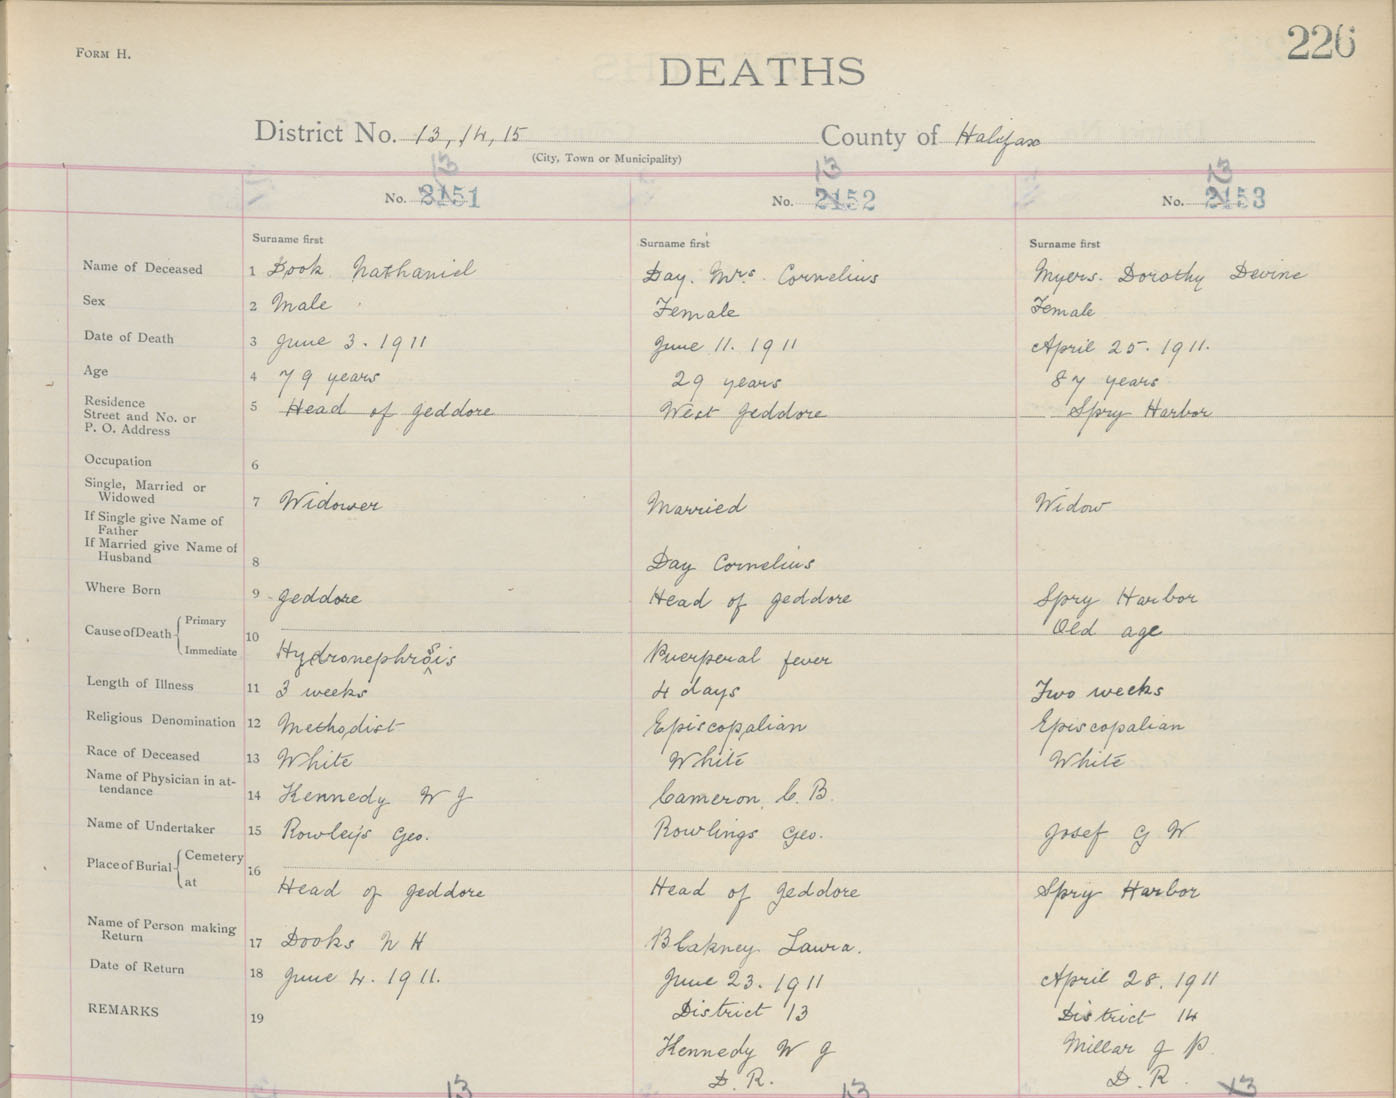 FORM H.
226
DEATHS
District No. 13, 14, 15 County of Halifax
(City, Town or Municipality)
13 13 13
No. 2151 No. 2152 No. 2153
Surname first Surname first Surname first
Name of Deceased 1 Dook Nathaniel Day. Mrs. Cornelius Myers. Dorothy Devine
Sex 2 Male Female Female
Date of Death 3 June 3. 1911 June 11. 1911 April 25. 1911.
Age 4 79 years 29 years 87 years
Residence
Street and No. or
P. O. Address 5 Head of Geddore West Geddore Spry Harbor
Occupation 6
Single, Married or
Widowed 7 Widower Married Widow
If Single give Name of
Father
If Married give Name of
Husband 8 Day Cornelius
Where Born 9 Geddore Head of Geddore Spry Harbor
Cause of Death Primary Old age
10
Immediate Hydronephrosis Puerperal fever
Length of Illness 11 3 weeks 4 days Two weeks
Religious Denomination 12 Methodist Episcopalian Episcopalian
Race of Deceased 13 White White White
Name of Physician in at-
tendance 14 Kennedy W J Cameron, C. B.
Name of Undertaker 15 Rowleys Geo. Rowlings Geo. Josef G W
Place of Burial Cemetery
16
at Head of Geddore Head of Geddore Spry Harbor
Name of Person making
Return 17 Dooks N H Blakney Laura.
Date of Return 18 June 4. 1911. June 23. 1911 April 28. 1911
REMARKS 19 District 13 District 14
Kennedy W J Millar J P.
D. R. D. R.
13 13 13